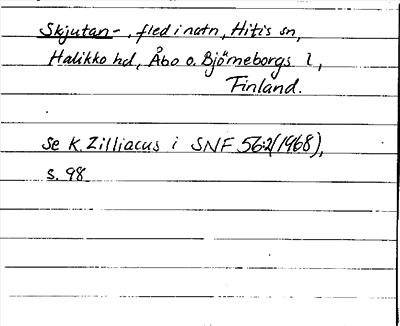 Skjutan-, fled i natn, Hitis sn,
Halikko hd, Åbo o. Björneborgs l,
Finland.
Se K. Zilliacus i SNF 56:2 (1968),
s. 98